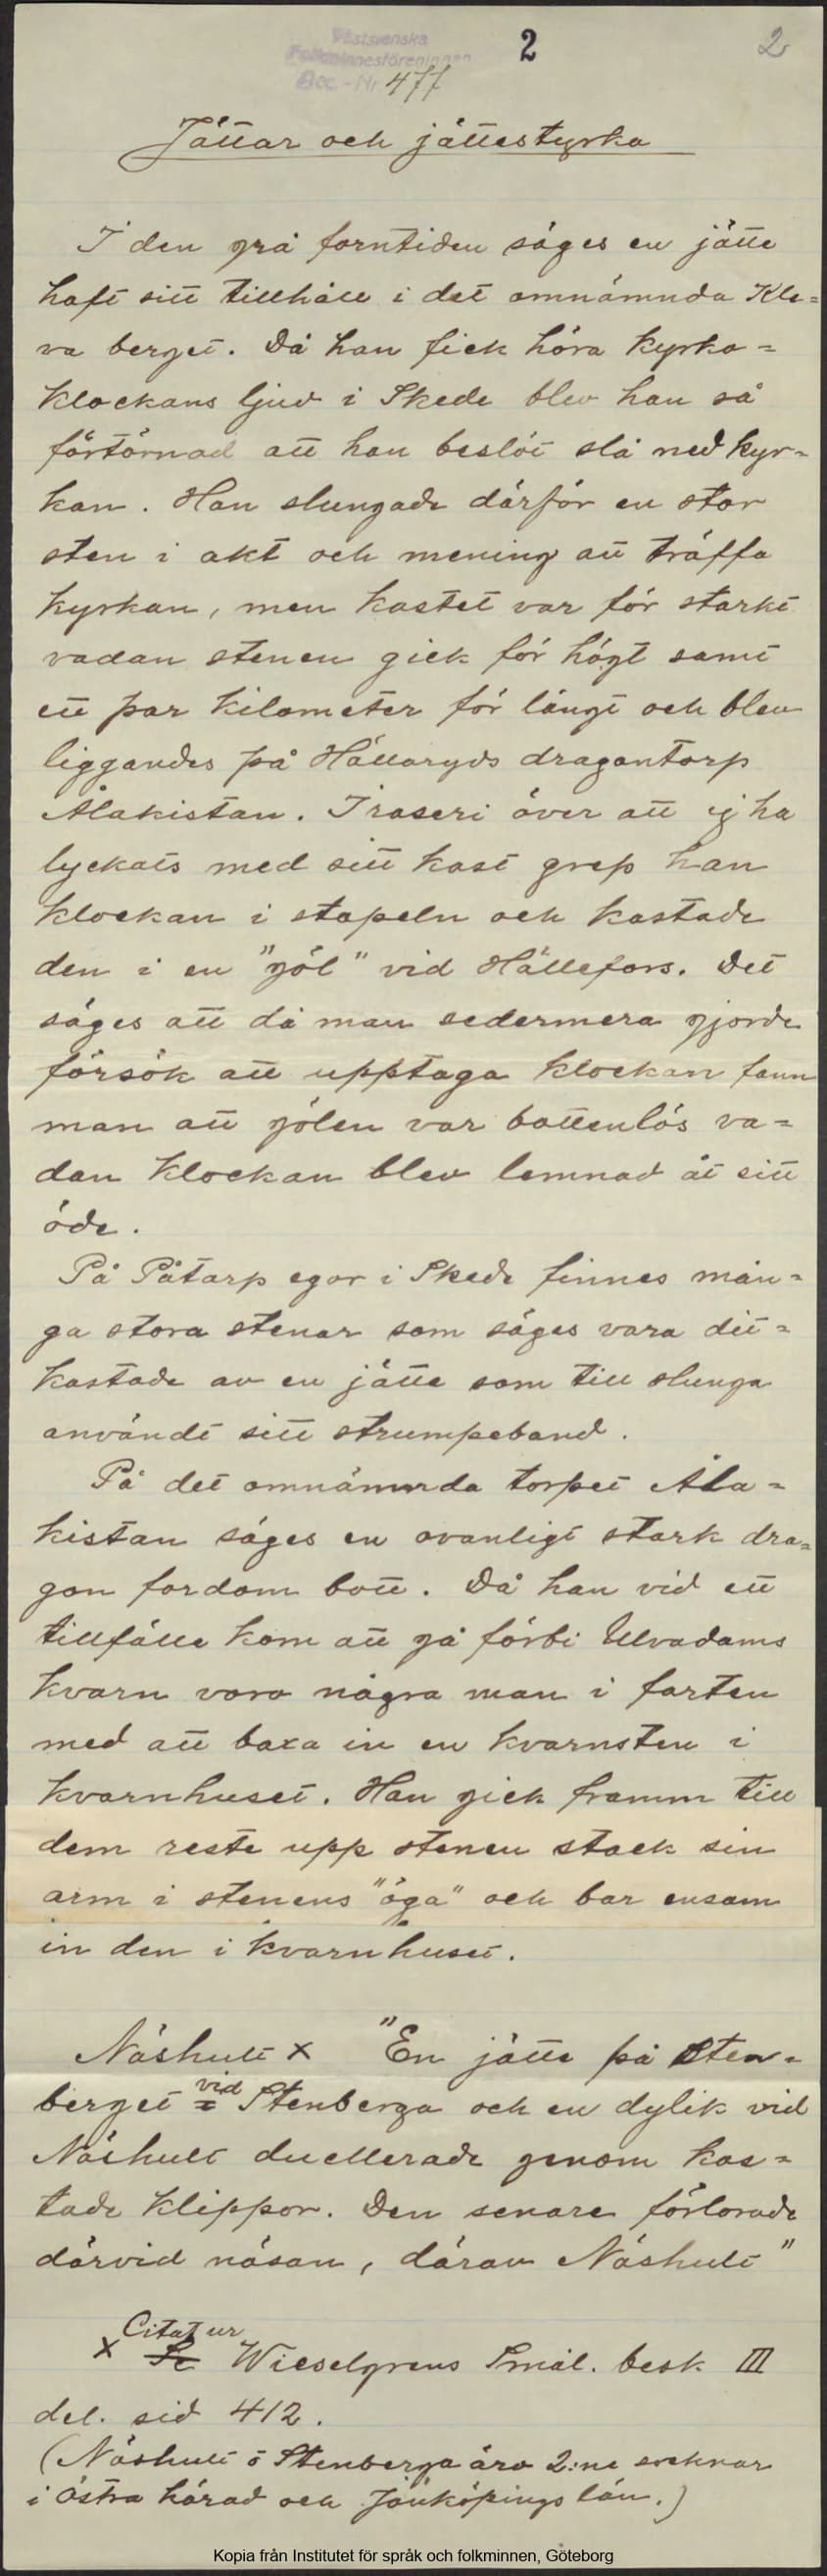 Västsvenska
2
2
Folkminnesföreningen
Acc.-Nr 477
Jättar och jättestyrka
I den grå forntiden säges en jätte
haft sitt tillhåll i det omnämnda Kle=
va berget. Då han fick höra kyrko=
klockans ljud i Skede blev han så
förtörnad att han beslöt slå ned kyr=
kan. Han slungade därför en stor
sten i akt och mening att träffa
kyrkan, men kastet var för starkt
vadan stenen gick för högt samt
ett par kilometer för långt och blev
liggandes på Hällaryds dragontorp
Ålakistan. I raseri över att ej ha
lyckats med sitt kast grep han
klockan i stapeln och kastade
den i en "göl" vid Hällefors. Det
säges att då man sedermera gjorde
försök att upptaga klockan fann
man att gölen var bottenlös va=
dan klockan blev lemnad åt sitt
öde.
På Påtarp egor i Skede finnes mån=
ga stora stenar som säges vara dit=
kastade av en jätte som till slunga
användt sitt strumpeband.
På det omnämnda torpet Åla=
kistan säges en ovanligt stark dra=
gon fordom bott. Då han vid ett
tillfälle kom att gå förbi Ulvadams
kvarn voro några man i farten
med att baxa in en kvarnsten i
kvarnhuset. Han gick framm till
dem reste upp stenen stack sin
arm i stenens "öga" och bar ensam
in den i kvarnhuset.
Näshult × "En jätte på Sten=
berget vid Stenberga och en dylik vid
Näshult duellerade genom kas=
tade klippor. Den senare förlorade
därvid näsan, därav Näshult"
× Citat ur Wieselgrens Smål. besk III
del. sid 412.
(Näshult o Stenberga äro 2:ne socknar
i Östra härad och Jönköpings län.)
Kopia från Institutet för språk och folkminnen, Göteborg